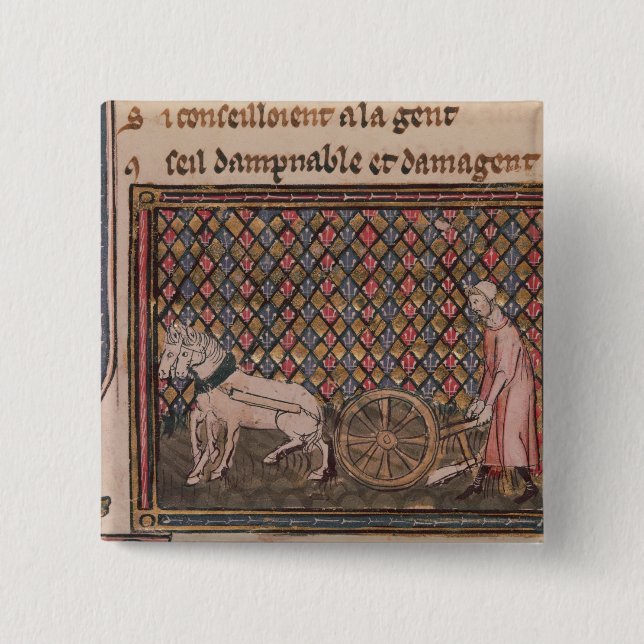 S i conseilloient a la gent
seil dampnable et damagent